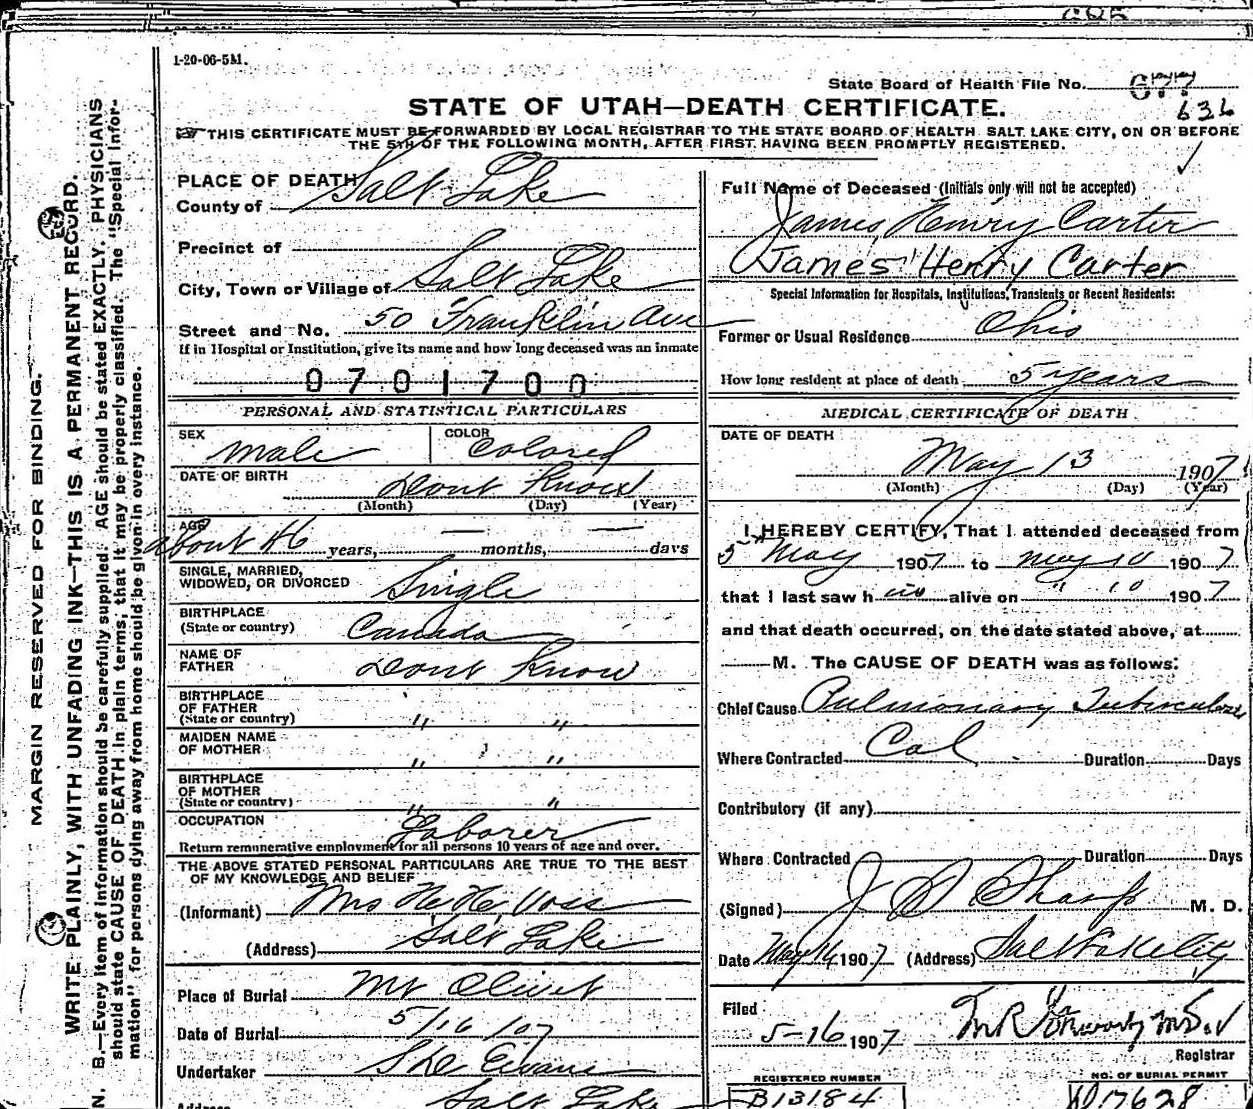 1-20-06-5M.
State Board of Health File No. 677
636
STATE OF UTAH—DEATH CERTIFICATE.
THIS CERTIFICATE MUST BE FORWARDED BY LOCAL REGISTRAR TO THE STATE BOARD OF HEALTH SALT LAKE CITY, ON OR BEFORE
THE 5TH OF THE FOLLOWING MONTH, AFTER FIRST HAVING BEEN PROMPTLY REGISTERED.
MARGIN RESERVED FOR BINDING.
WRITE PLAINLY, WITH UNFADING INK—THIS IS A PERMANENT RECORD.
N. B.—Every item of information should be carefully supplied. AGE should be stated EXACTLY. PHYSICIANS
should state CAUSE OF DEATH in plain terms, that it may be properly classified. The "Special Infor-
mation" for persons dying away from home should be given in every instance.
PLACE OF DEATH
County of Salt Lake
Precinct of
City, Town or Village of Salt Lake
Street and No. 50 Franklin Ave
If in Hospital or Institution, give its name and how long deceased was an inmate
0701700
PERSONAL AND STATISTICAL PARTICULARS
SEX male COLOR Colored
DATE OF BIRTH Dont Know
(Month) (Day) (Year)
AGE about 46 years, — months, — days
SINGLE, MARRIED,
WIDOWED, OR DIVORCED Single
BIRTHPLACE
(State or country) Canada
NAME OF
FATHER Dont Know
BIRTHPLACE
OF FATHER
(State or country) " "
MAIDEN NAME
OF MOTHER " "
BIRTHPLACE
OF MOTHER
(State or country) " "
OCCUPATION Laborer
Return remunerative employment for all persons 10 years of age and over.
THE ABOVE STATED PERSONAL PARTICULARS ARE TRUE TO THE BEST
OF MY KNOWLEDGE AND BELIEF
(Informant) Mrs H. H. Voss
(Address) Salt Lake
Place of Burial Mt Olivet
Date of Burial 5/16/07
Undertaker Evans
Address Salt Lake
Full Name of Deceased (Initials only will not be accepted)
James Henry Carter
James Henry Carter
Special Information for Hospitals, Institutions, Transients or Recent Residents:
Former or Usual Residence Ohio
How long resident at place of death 5 years
MEDICAL CERTIFICATE OF DEATH
DATE OF DEATH
May 13 1907
(Month) (Day) (Year)
I HEREBY CERTIFY, That I attended deceased from
5 May 1907 to May 10 1907
that I last saw him alive on " 10 1907
and that death occurred, on the date stated above, at
— M. The CAUSE OF DEATH was as follows:
Chief Cause Pulmonary Tuberculosis
Where Contracted Cal Duration Days
Contributory (if any)
Where Contracted Duration Days
(Signed) J S Sharp M. D.
Date May 14 1907 (Address) Salt Lake City
Filed
5-16 1907
Registrar
REGISTERED NUMBER
B13184
NO. OF BURIAL PERMIT
17628